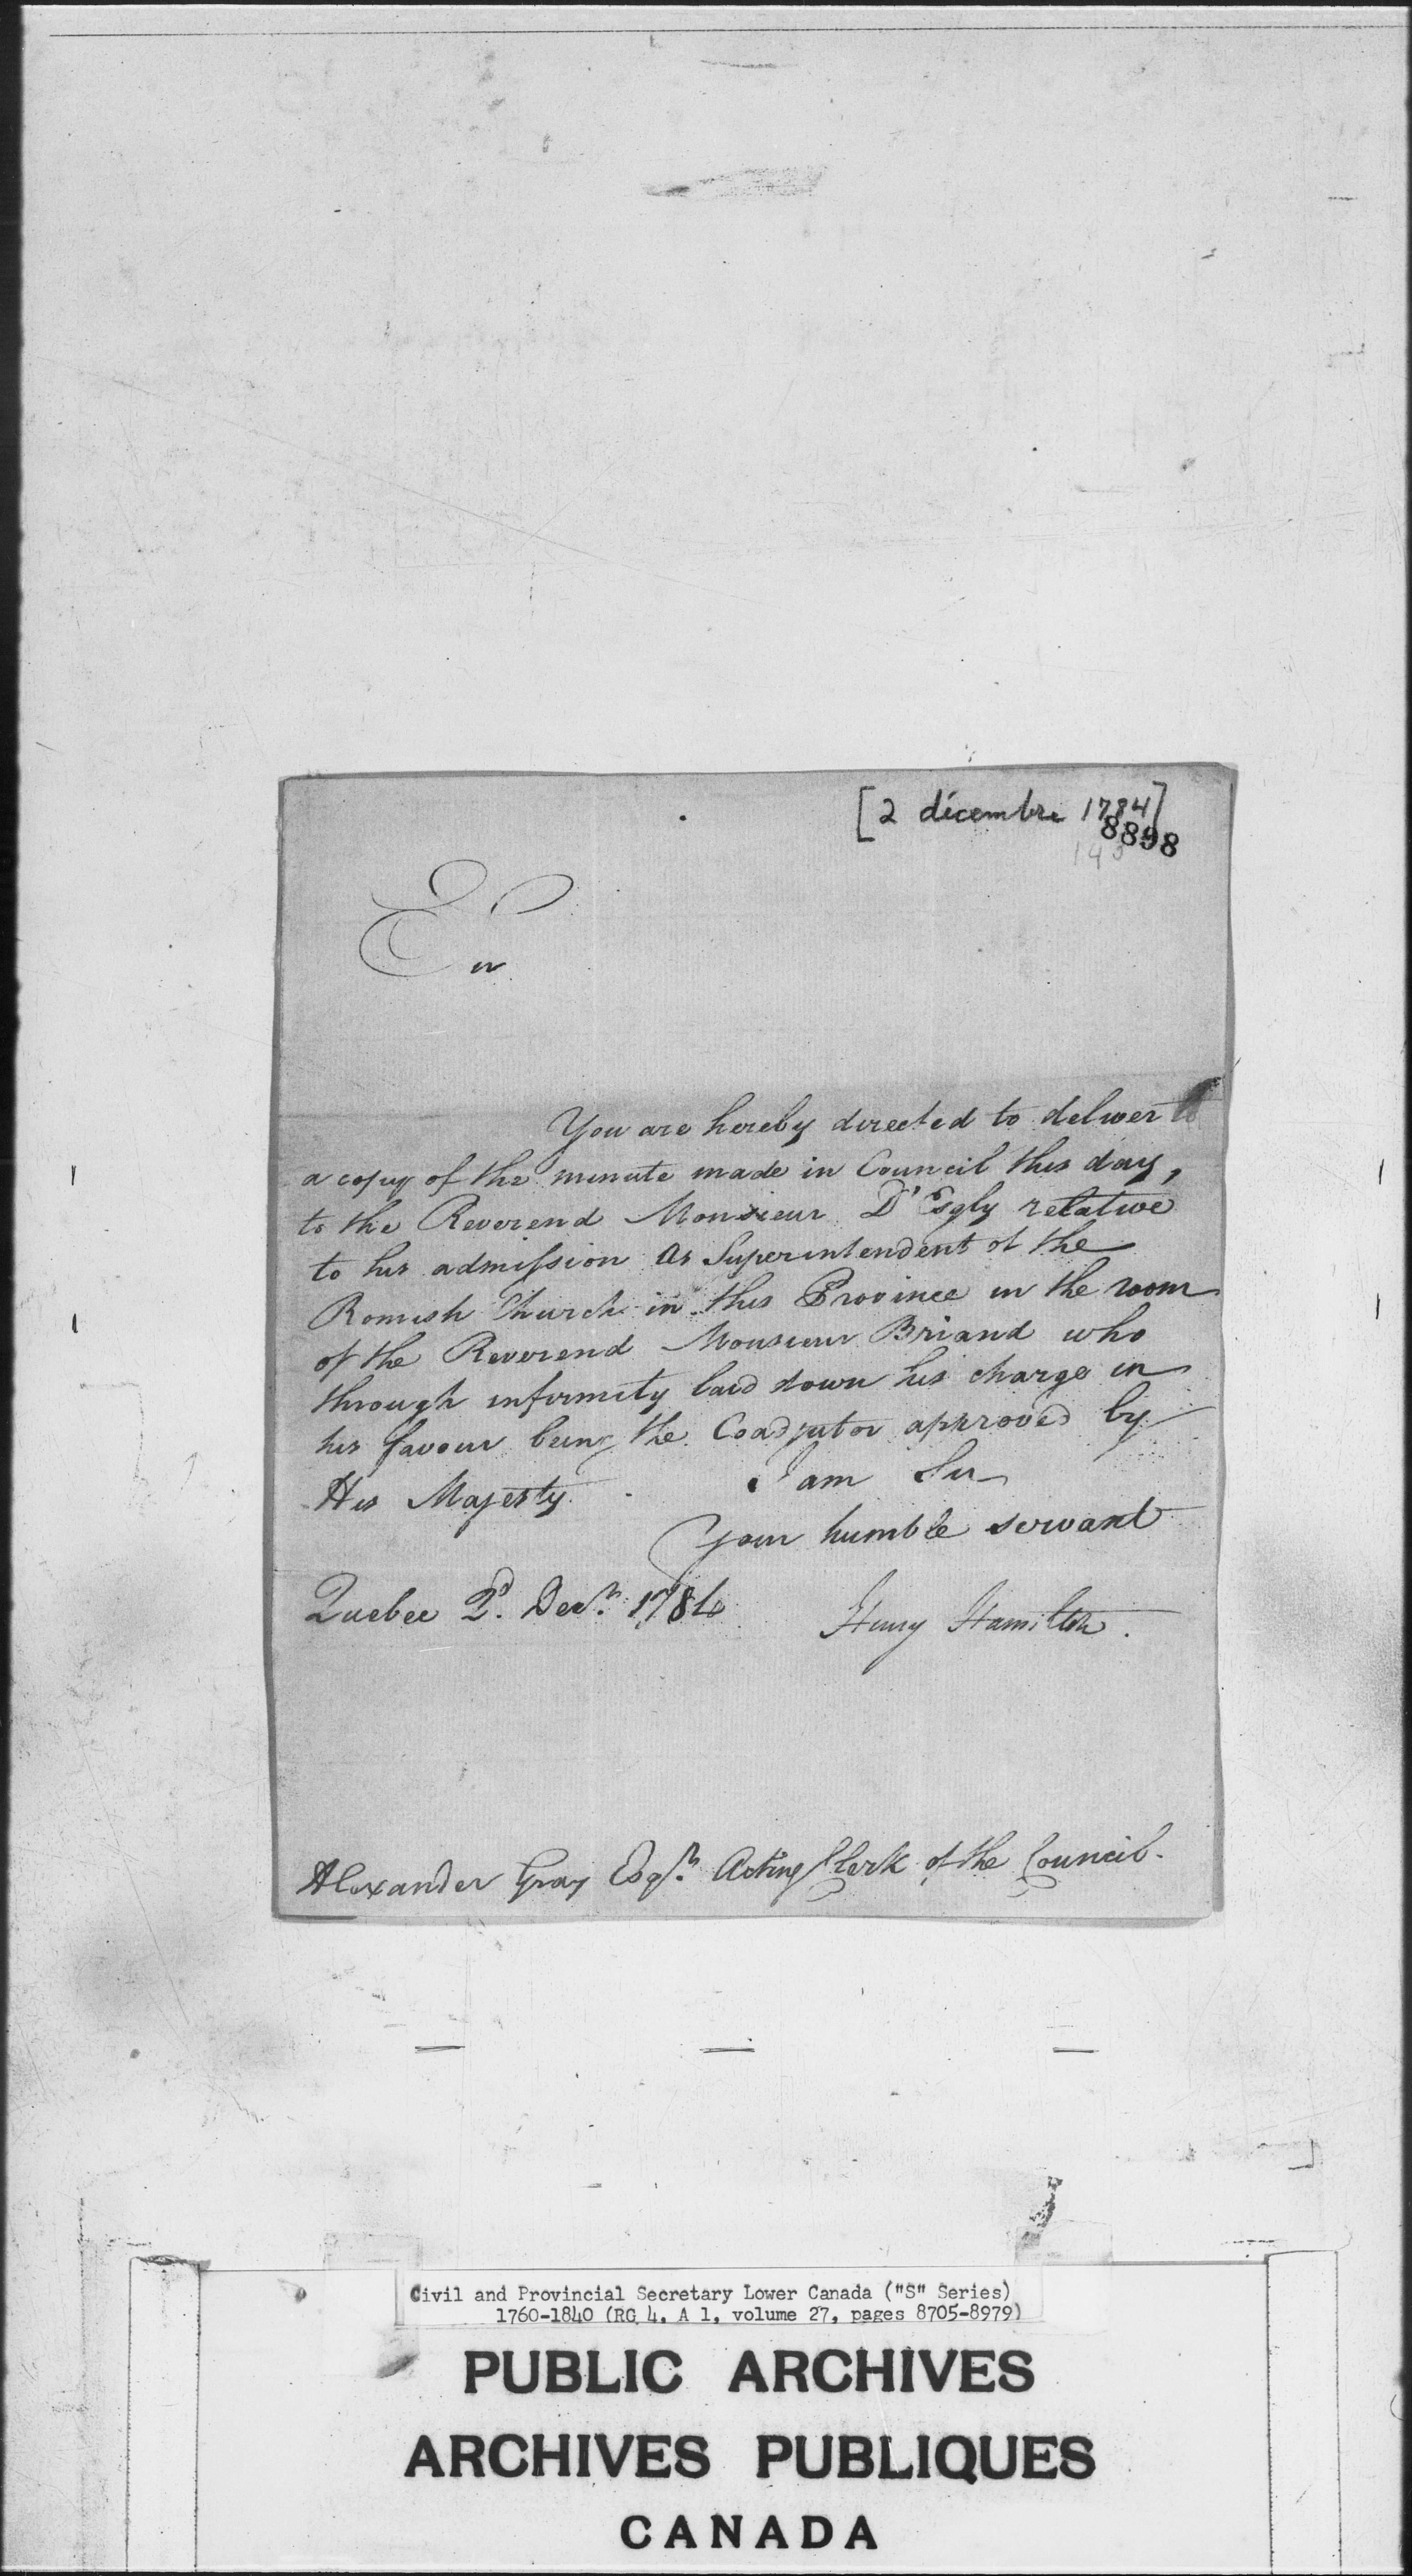 [2 décembre 1784]
8898
Sir
You are hereby directed to deliver to
a copy of the minute made in Council this day,
to the Reverend Monsieur D'Esgly relative
to his admission as Superintendent of the
Romish Church in this Province in the room
of the Reverend Monsieur Briand who
through infirmity laid down his charge in
his favour being the Coadjutor approved by
His Majesty.
I am Sir
Your humble servant
Quebec 2d. Decr. 1784
Henry Hamilton.
Alexander Gray Esqr. Acting Clerk of the Council.
Civil and Provincial Secretary Lower Canada ("S" Series)
1760-1840 (RG 4, A 1, volume 27, pages 8705-8979)
PUBLIC ARCHIVES
ARCHIVES PUBLIQUES
CANADA